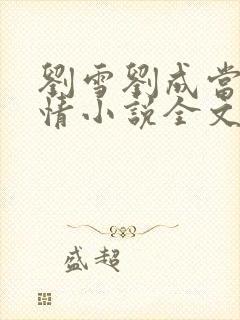 劉雪劉成當
情小說全文
盛超